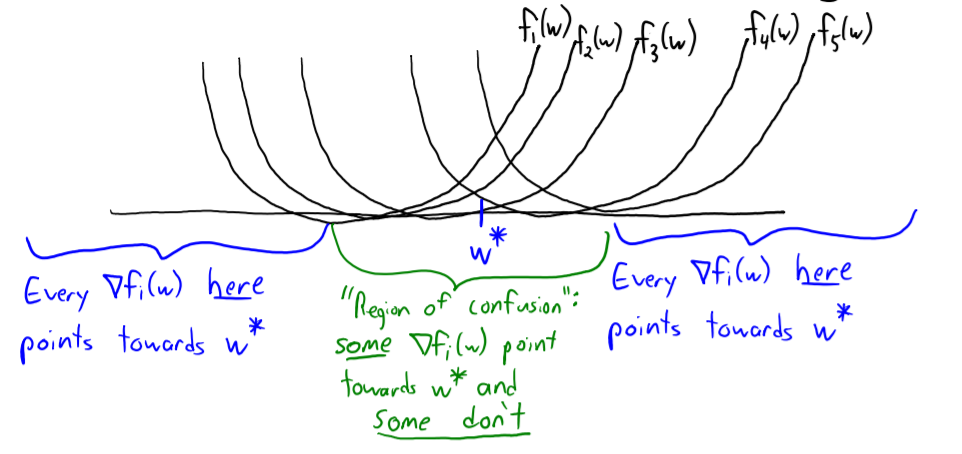 f₁(w) f₂(w) f₃(w) f₄(w) f₅(w)
w*
Every ∇fᵢ(w) here
points towards w*
"Region of confusion":
some ∇fᵢ(w) point
towards w* and
some don't
Every ∇fᵢ(w) here
points towards w*